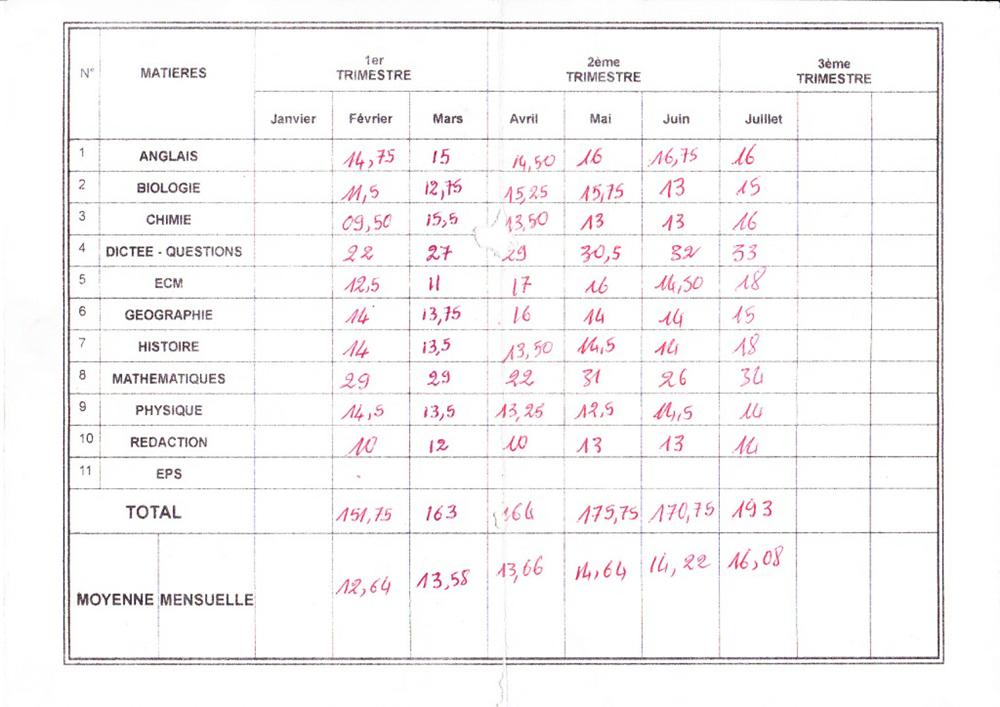 N° MATIERES 1er TRIMESTRE 2ème TRIMESTRE 3ème TRIMESTRE
Janvier Février Mars Avril Mai Juin Juillet
1 ANGLAIS 14,75 15 14,50 16 16,75 16
2 BIOLOGIE 11,5 12,75 15,25 15,75 13 15
3 CHIMIE 09,50 15,5 13,50 13 13 16
4 DICTEE - QUESTIONS 22 27 29 30,5 32 33
5 ECM 12,5 11 17 16 14,50 18
6 GEOGRAPHIE 14 13,75 16 14 14 15
7 HISTOIRE 14 13,5 13,50 14,5 14 18
8 MATHEMATIQUES 29 29 22 31 26 34
9 PHYSIQUE 14,5 13,5 13,25 12,5 14,5 14
10 REDACTION 10 12 10 13 13 14
11 EPS
TOTAL 151,75 163 164 175,75 170,75 193
MOYENNE MENSUELLE 12,64 13,58 13,66 14,64 14,22 16,08